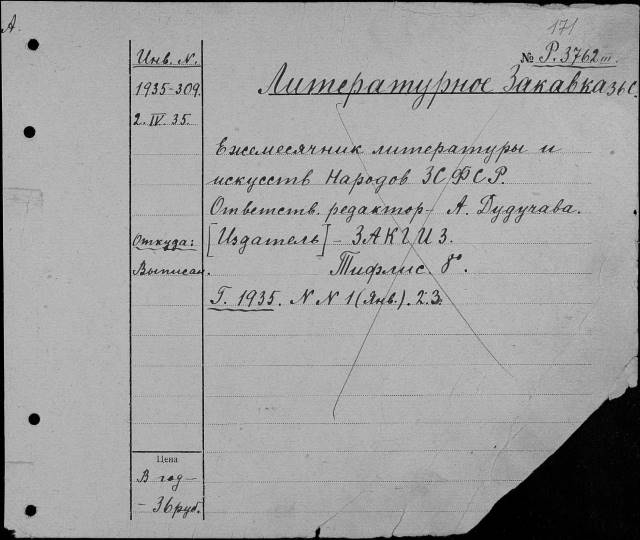 А.
171
Инв. N.
№ Р. 3762 III
1935-309.
Литературное Закавказье.
2. IV. 35.
Ежемесячник литературы и
искусств Народов ЗСФСР.
Ответств. редактор – А. Дудучава.
Откуда:
[Издатель] – ЗАКГИЗ.
Выписан.
Тифлис. 8°.
Г. 1935. N N 1 (янв.). 2.3.
Цена
В год –
– 36 руб.